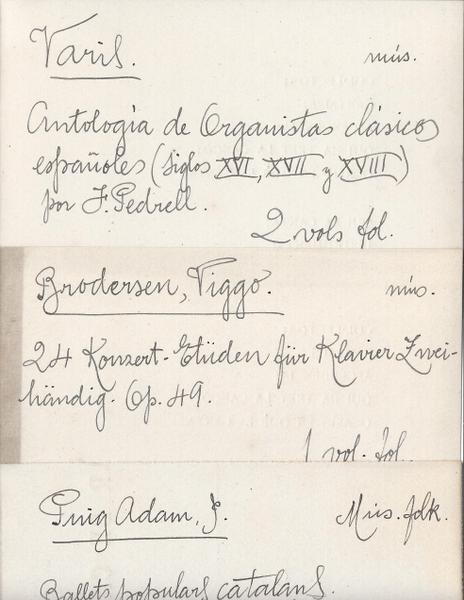 Varis.
mús.
Antologia de Organistas clásicos
españoles (siglos XVI, XVII y XVIII)
por F. Pedrell.
2 vols fol.
Brodersen, Viggo.
mús.
24 Konzert-Etüden für Klavier Zwei-
händig. Op. 49.
1 vol. fol.
Puig Adam, J.
Mús. folk.
Ballets populars catalans.